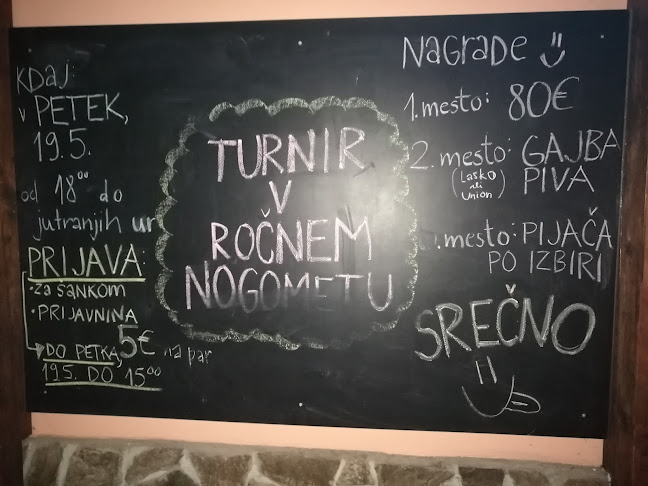 KDaJ:
v PETEK,
19.5.
od 18⁰⁰ do
jutranjih ur
PRIJAVA:
• ZA ŠANKOM
• PRIJAVNINA
5€ na par
DO PETKA,
19.5. DO 15⁰⁰
TURNIR
V
ROČNEM
NOGOMETU
NaGRaDe
1. mesto: 80€
2. mesto: GAJBA
PIVA
(Lasko
ali
Union)
. mesto: PIJAČA
PO IZBIRI
SREČNO